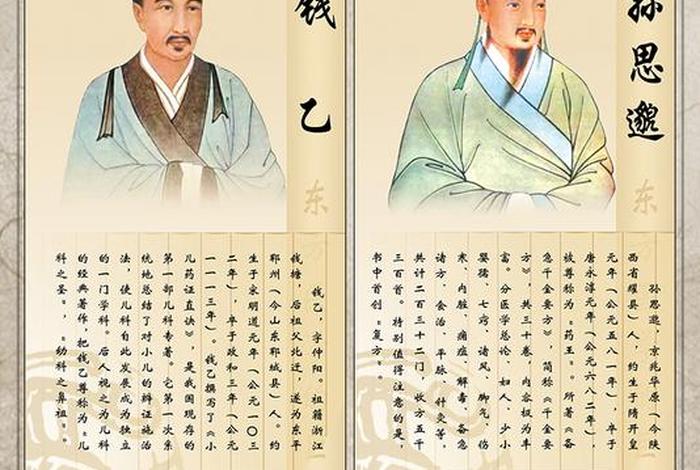 钱乙
东
钱乙，字仲阳。祖籍浙江
钱塘，后祖父北迁，遂为东平
郓州（今山东郓城县）人。约
生于宋明道元年（公元一〇三
二年），卒于政和三年（公元
一一一三年）。钱乙撰写了《小
儿药证直诀》，是我国现存的
第一部儿科专著。它第一次系
统地总结了对小儿的辩证施治
法，使儿科自此发展成为独立
的一门学科。后人视之为儿科
的经典著作，把钱乙尊称为“儿
科之圣”，“幼科之鼻祖”。
孙思邈
东
孙思邈，京兆华原（今陕
西省耀县）人，约生于隋开皇
元年（公元五八一年），卒于
唐永淳元年（公元六八二年），
被尊称为“药王”。所著《备
急千金要方》，简称《千金要
方》，共三十卷，内容极为丰
富。分医学总论、妇人、少小
婴孺、七窍、诸风、脚气、伤
寒、内脏、痈疽、解毒、备急
诸方、食治、平脉、针灸等，
共计二百三十二门，收方五千
三百首。特别值得注意的是，
书中首创“复方”。